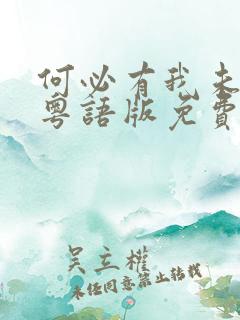 何必有我未
粵語版免費
吳立權
未经同意禁止转载